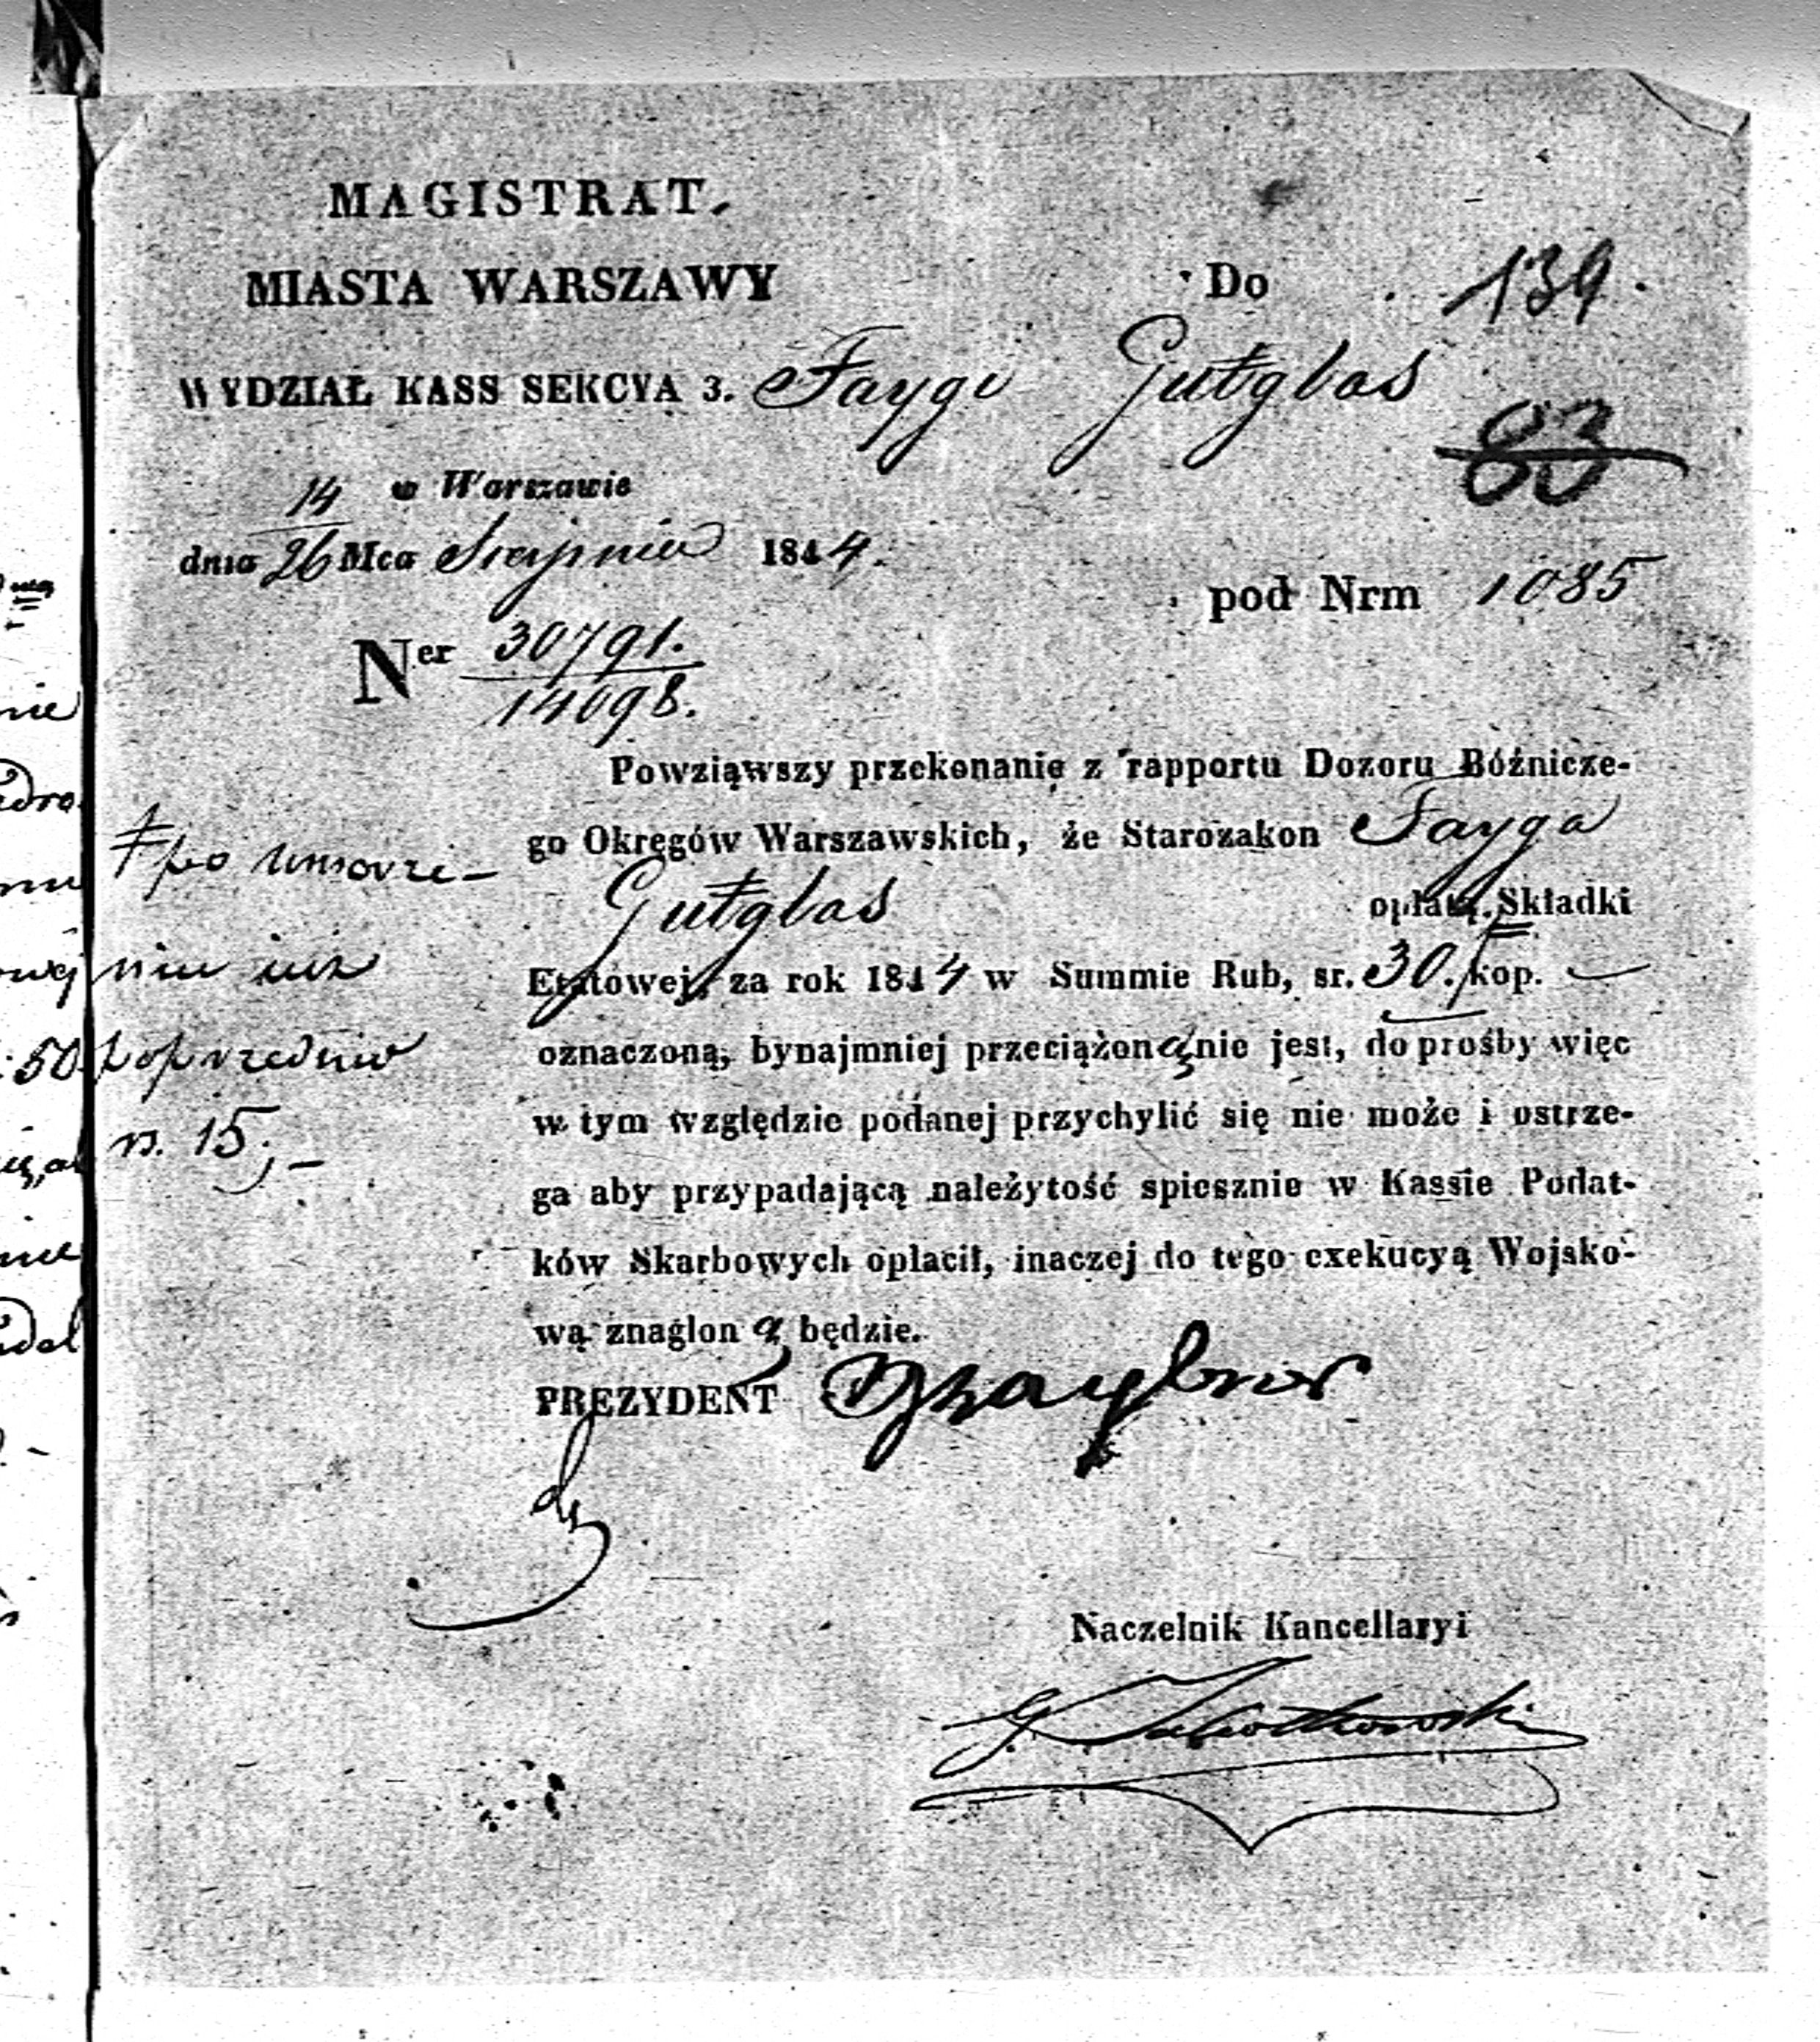 MAGISTRAT.
MIASTA WARSZAWY
WYDZIAŁ KASS SEKCYA 3.
14 w Warszawie
dnia 26 Mca Sierpnia 1844.
Ner 30791.
14098.
Do 139.
Faygi Gutglas
83
pod Nrm 1085
Powziąwszy przekonanie z rapportu Dozoru Bóżnicze-
go Okręgów Warszawskich, że Starozakon Fayga
Gutglas opłatą Składki
Etatowej, za rok 1844 w Summie Rub, sr. 30. kop. —
oznaczoną, bynajmniej przeciążoną nie jest, do prośby więc
w tym względzie podanej przychylić się nie może i ostrze-
ga aby przypadającą należytość spiesznie w Kassie Podat-
ków Skarbowych opłacił, inaczej do tego exekucyą Wojsko-
wą znaglon ą będzie.
po umorze-
niu już
poprzednio
rs. 15,-
PREZYDENT
Naczelnik Kancellaryi
nie
50
nie